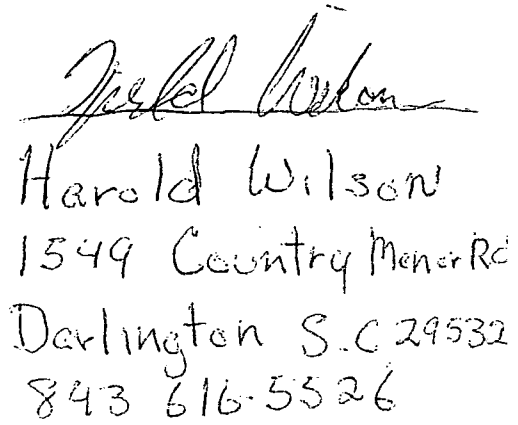 Harold Wilson
Harold Wilson
1549 Country Manor Rd
Darlington S.C 29532
843 616-5526